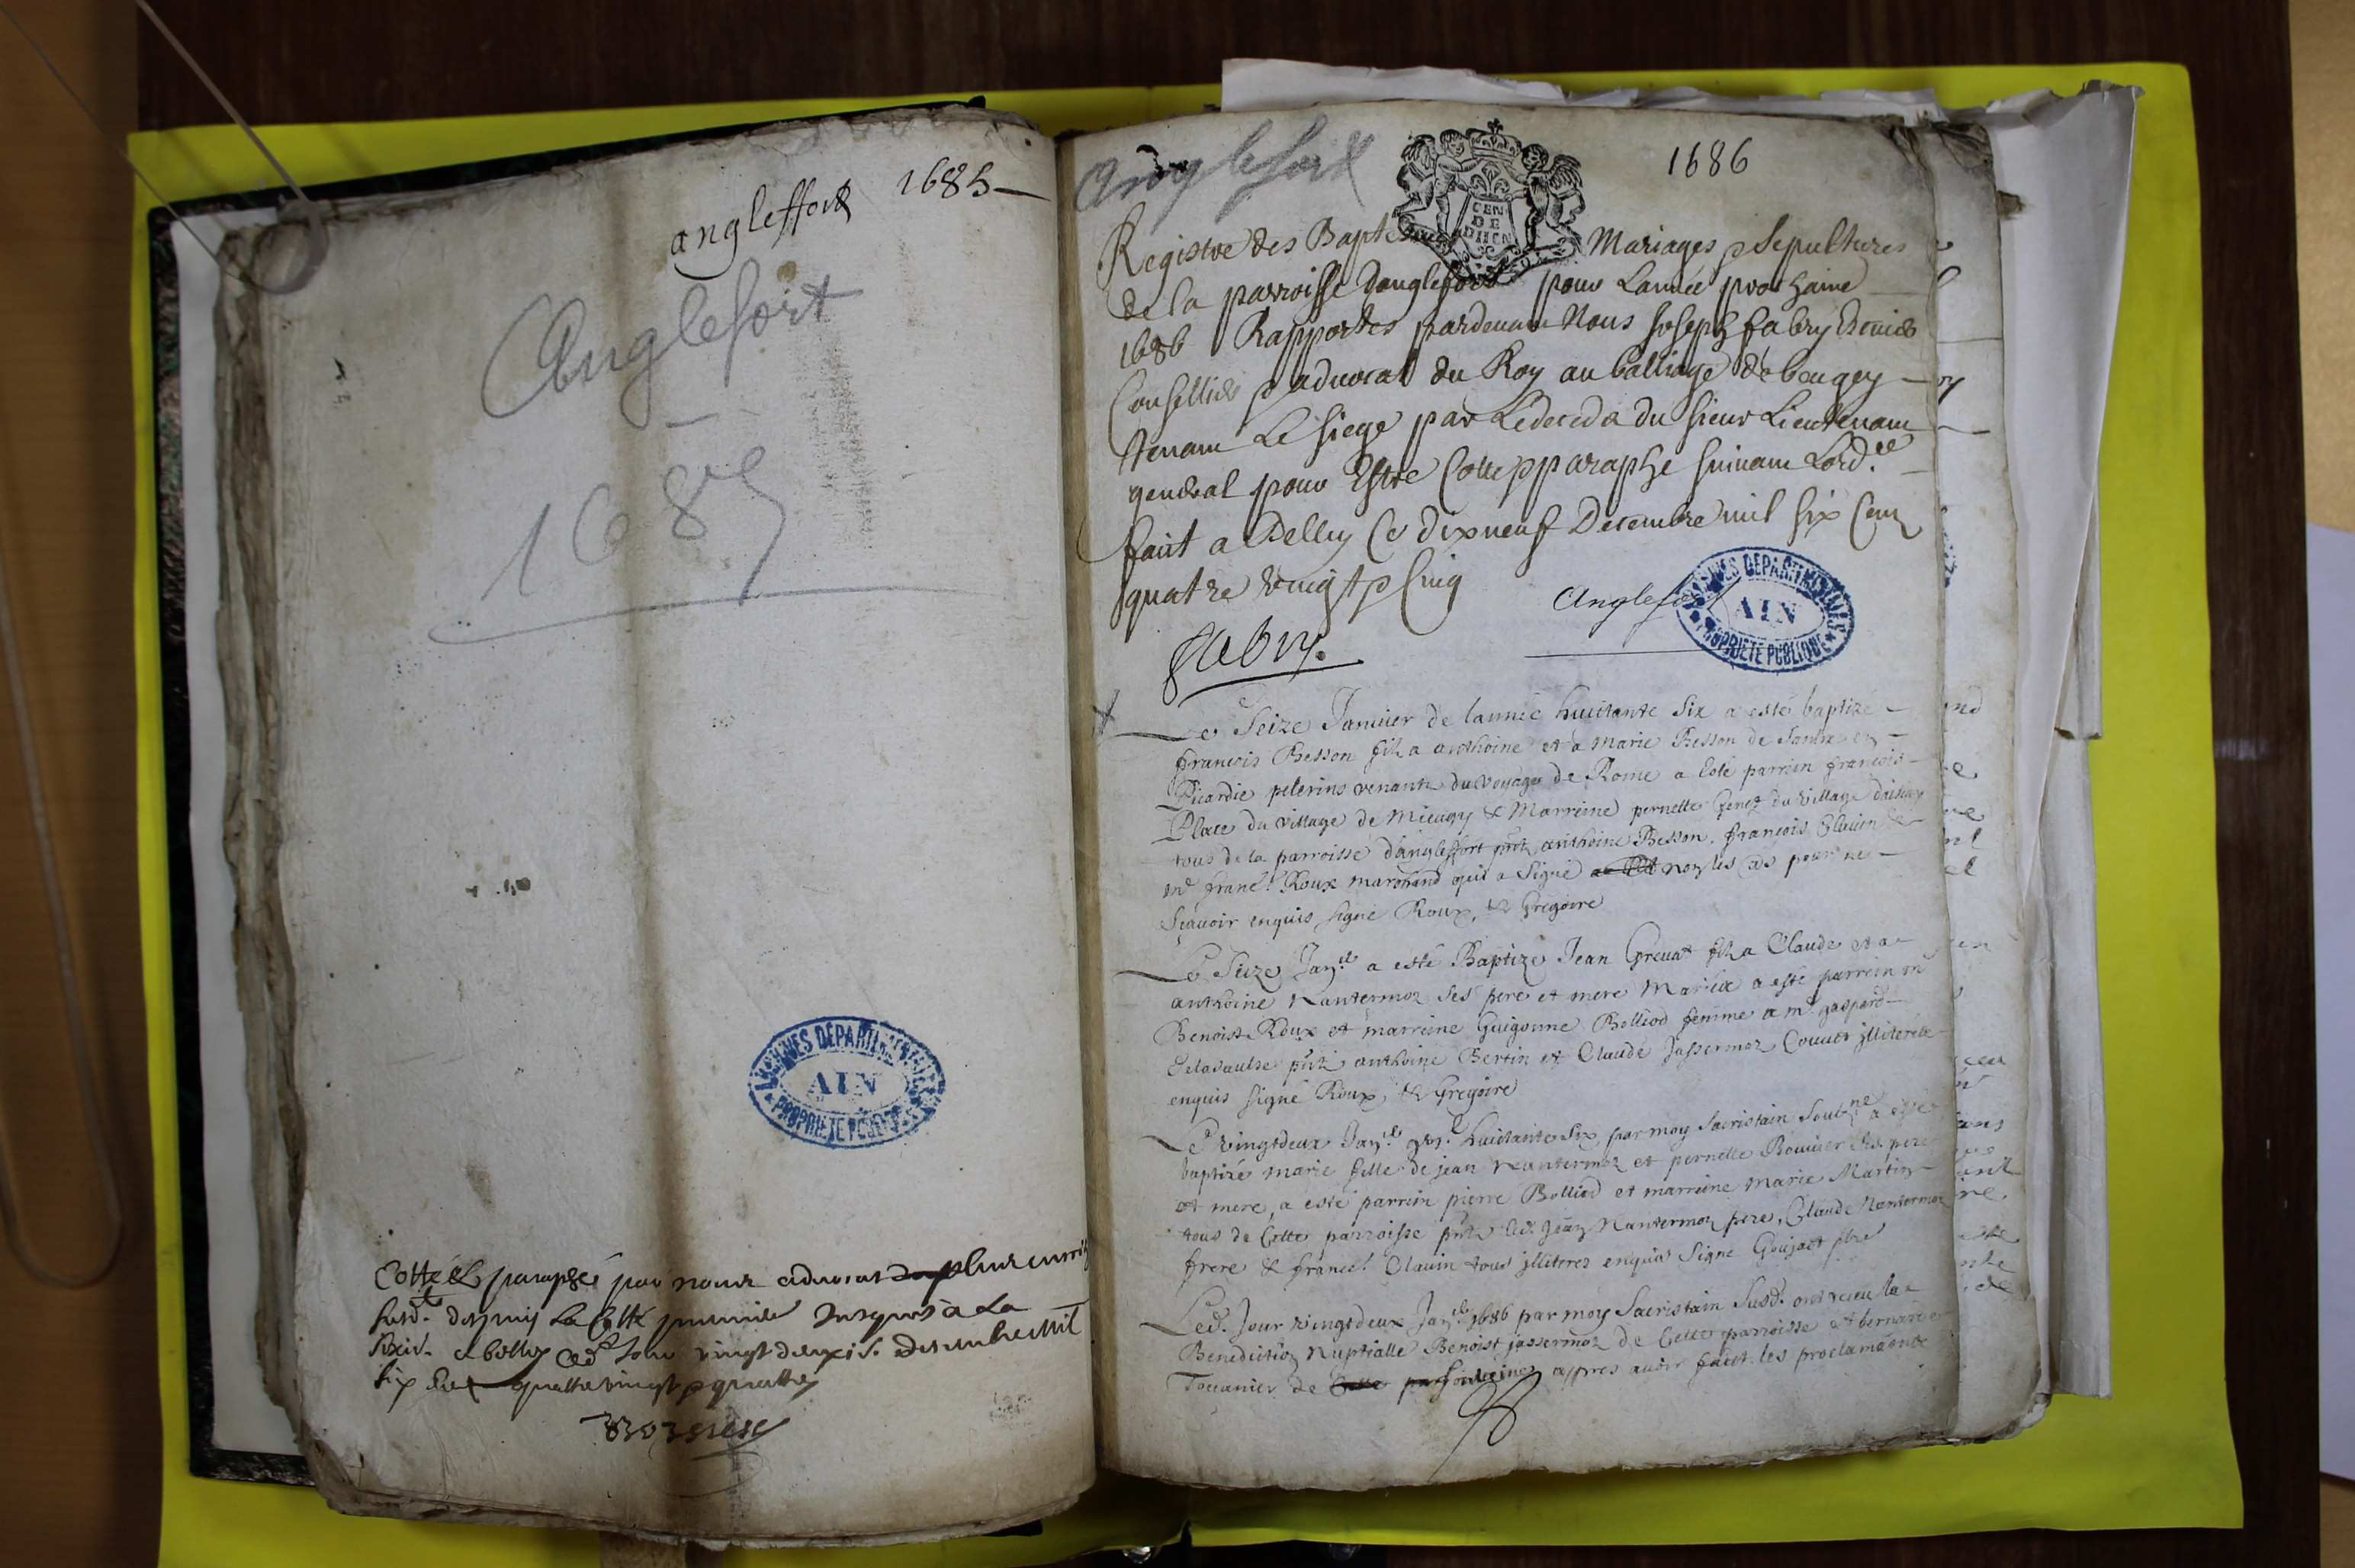 angleffort 1685
Anglefort
1685
ARCHIVES DÉPARTEMENTALES
AIN
PROPRIÉTÉ PUBLIQUE
Cotté & paraphé par nous advocat
susd.t depuis la Cotte premiere Jusques à la
a belley led. Jour vingt deux decembre mil
six cent quatre vingt p quattre
Anglefort
1686
GEN
DE
DIION
Registre des Baptesmes Mariages p Sepultures
de la parroisse Danglefort pour Lannée prochaine
1686 Rapportes pardevant Nous Joseph fabry Escuier
Conseillier p advocat du Roy au balliage de beugey
tenant Le siege par Ledeceda du sieur Lieutenant
general pour Estre Cotte p paraphe suivant Lord.ce
faict a Belley Ce dixneuf Decembre mil six Cent
quatre vingt p Cinq
Anglefort
fabry.
ARCHIVES DÉPARTEMENTALES
AIN
PROPRIÉTÉ PUBLIQUE
Le Seize Januier de lannée huictante Six a esté baptize
francois Besson filz a anthoine et a Marie Besson de en
Picardie pelerins venantz du voyage de Rome a Esté parrien francois
Place du village de Mieugy & Marreine pernette Genez du village
tous de la parroisse d'angleffort pñtz anthoine Besson, françois Clavin &
m.e franc.s Roux marchand qui a Signé non les ads pour ne
Sçauoir enquis signé Roux, & Gregoire
Le Seize Jan.er a esté Baptize Jean Grevat filz a Claude et a
anthoine Nantermoz ses pere et mere Mariéz a esté parrein m.e
Benoist Roux et marreine Guigonne Bolliod femme a m.e gaspard
Delasaulse pñtz anthoine Bertin et Claude Jassermoz Couuer jlliterés
enquis signé Roux, & Gregoire
Le vingtdeux Jan.er huictante Six, par moy Sacristain Soub.ne a esté
baptizé marie fille de jean Nantermoz et pernette Bouuier ses pere
et mere, a esté parrein pierre Bolliod et marreine marie Martin
tous de Cette parroisse pñtz led. Jean Nantermoz pere, Claude Nantermoz
frere & franc.s Clavin tous jlliteres enquis Signé Goujact pbre
Led. Jour vingtdeux Jan.er 1686 par moy Sacristain Susd. ont receu la
Benediction Nuptialle Benoist jassermoz de Cette parroisse et bernarde
Toccanier de Cette parroisse appres auoir faict les proclamãons